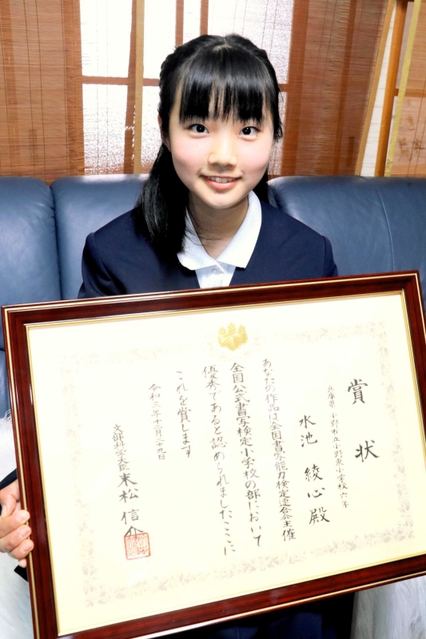 賞状
兵庫県 小野市立小野東小学校 六年
水池 綾心 殿
あなたの作品は全国書写能力検定委員会主催
全国公式書写検定小学校の部において
優秀であると認められましたここに
これを賞します
令和三年十二月二十九日
文部科学大臣 末松 信介